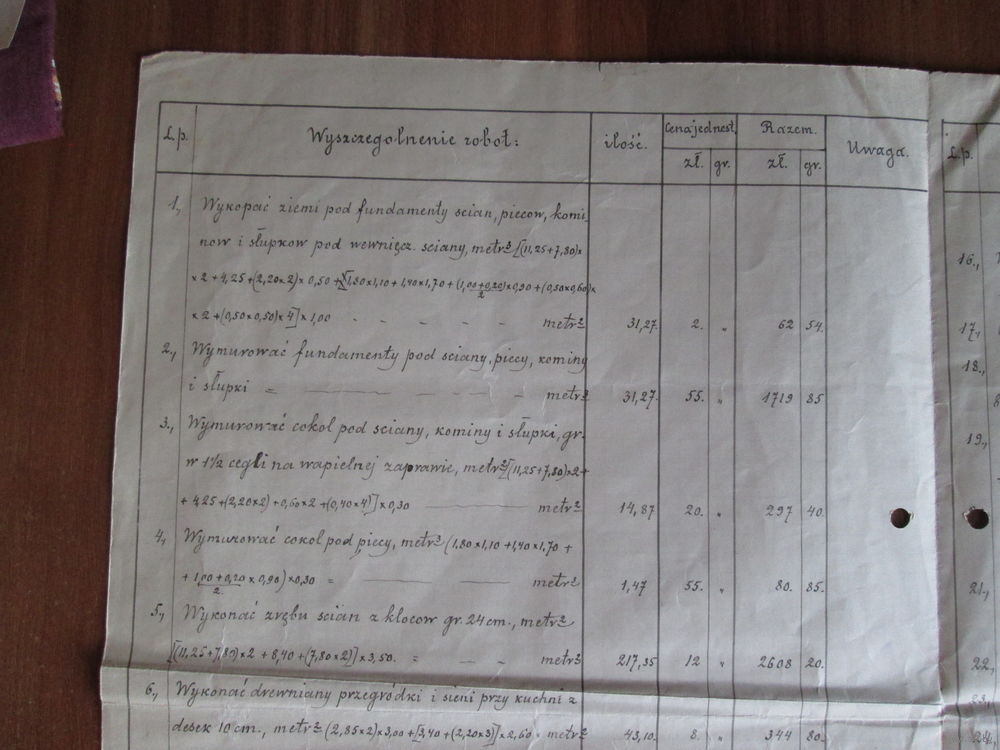 L.p. Wyszczegolnenie robot: ilość. Cena jednest. Razem. Uwaga. L.p.
zł. gr. zł. gr.
1., Wykopać ziemi pod fundamenty scian, piecow, komi
now i słupkow pod wewnięcz. sciany, metr³ [(11,25+7,80)×
×2+4,25+(2,20×2)×0,50+[1,80×1,10+1,40×1,70+(1,00+0,20)/2×0,90+(0,50×0,60)×
×2+(0,50×0,50)×4]×1,00 - - - - - metr³ 31,27. 2. „ 62 54.
2., Wymurować fundamenty pod sciany, piecy, kominy
i słupki = — - - - metr³ 31,27. 55. „ 1719 85
3., Wymurować cokol pod sciany, kominy i słupki, gr.
w 1½ cegli na wapielnej zaprawie, metr² [(11,25+7,80)×2+
+4,25+(2,20×2)+0,60×2+(0,40×4)]×0,30 — — metr² 14,87 20. „ 297 40.
4., Wymurować cokol pod piecy, metr³ (1,80×1,10+1,40×1,70+
+(1,00+0,20)/2×0,90)×0,30 = — — metr³ 1,47 55. „ 80. 85.
5., Wykonać zrębu scian z klocow gr. 24 cm., metr²
[(11,25+7,80)×2+8,40+(7,80×2)]×3,50. = — — metr² 217,35 12 „ 2608 20.
6., Wykonać drewniany przegródki i sieni przy kuchni z
desek 10 cm., metr² (2,85×2)×3,00+[3,40+(2,20×3)]×2,60 = metr² 43,10. 8. „ 344 80.
16.,
17.,
18.,
19.,
21.,
22.,
23.,
24.